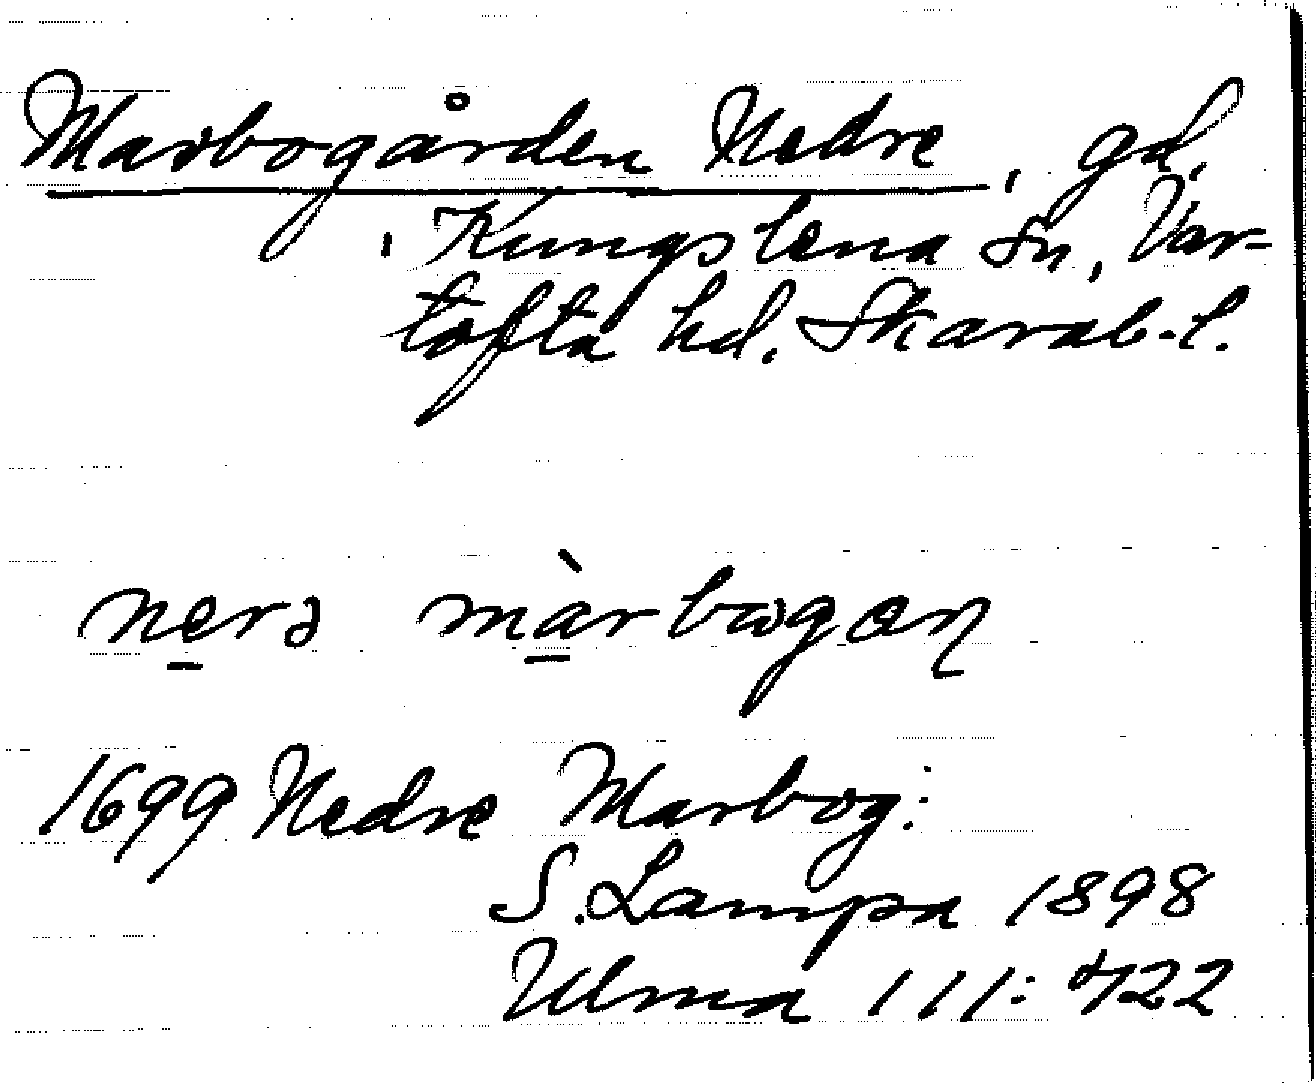 Marbogården Nedre, gd,
, Kungslena sn, Var-
tofta hd. Skarab.l.
nerə màrbωgan
1699 Nedre Marbog:
S. Lampa 1898
Ulma 111:422